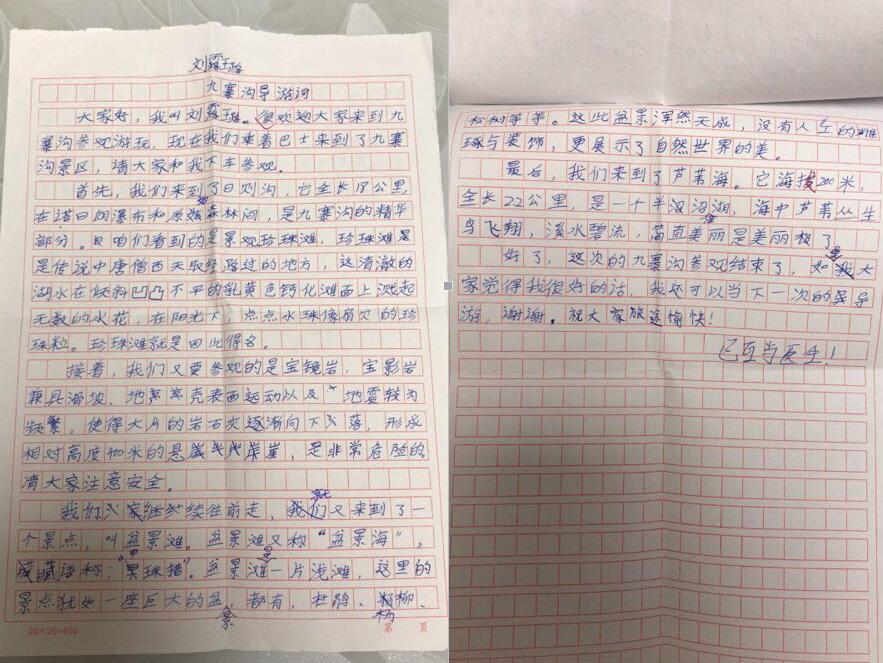 刘露璐
九寨沟导游词
大家好，我叫刘露璐。很欢迎大家来到九
寨沟参观游玩，现在我们乘着巴士来到了九寨
沟景区，请大家和我下车参观。
首先，我们来到了日则沟，它全长18公里，
在诺日朗瀑布和原始森林间，是九寨沟的精华
部分。咱们看到的是景观珍珠滩，珍珠滩
是传说中唐僧西天取经路过的地方，这清澈的
湖水在倾斜凹凸不平的乳黄色钙化滩面上溅起
无数的水花，在阳光下，点点水珠像的珍
珠粒。珍珠滩就是由此得名。
接着，我们又要参观的是宝镜岩，宝影岩
兼具滑坡、地壳表面运动以及地震较为
频繁，使得大片的岩石逐渐向下落，形成
相对高度400米的悬崖，是非常危险的，
请大家注意安全。
我们继续往前走，我们就又来到了一
个景点，叫盆景滩。盆景滩又称“盆景海”，
藏语称：“甲珠措”。盆景滩是一片浅滩，这里的
景点犹如一座巨大的盆景，都有，杜鹃、杨柳、
松树等等。这些盆景浑然天成，没有人工的雕
琢与装饰，更展示了自然世界的美。
最后，我们来到了芦苇海。它海拔200米，
全长22公里，是一个半沼泽湖，海中芦苇丛生
鸟飞翔，溪水碧流，简直美丽是美丽极了
好了，这次的九寨沟参观结束了，如果大
家觉得我很好的话，我还可以当下一次的导
游，谢谢。祝大家旅途愉快！